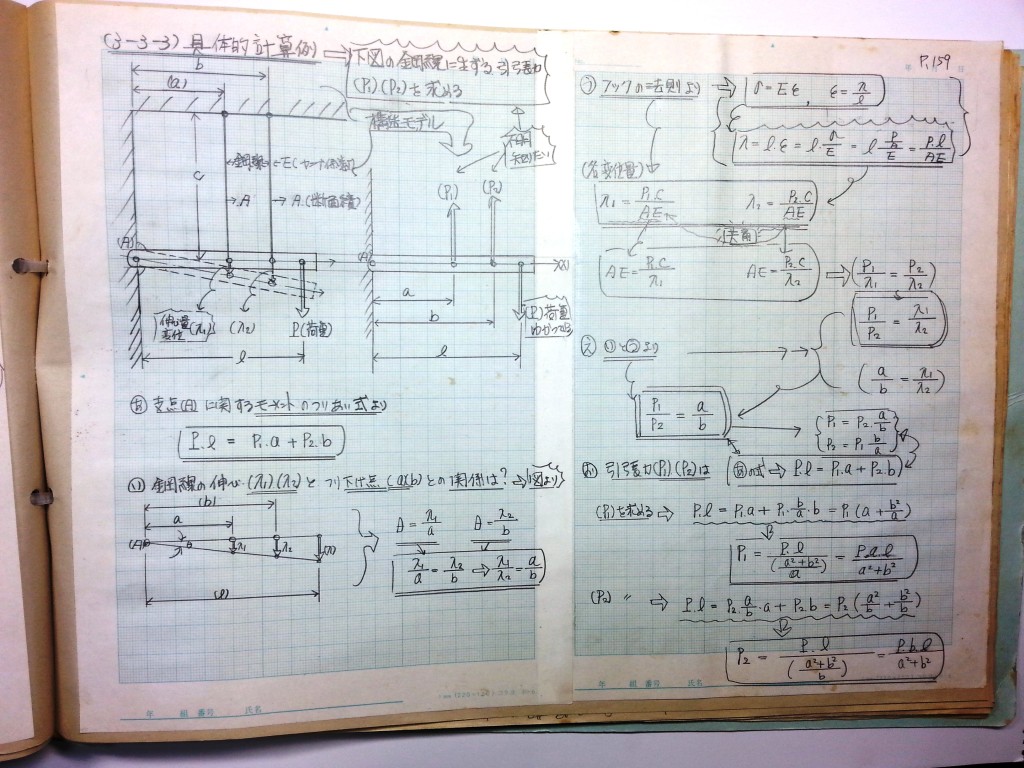 (3-3-3) 具体的計算例 → 下図の鋼線に生ずる引張力
(P₁)(P₂)を求める
構造モデル
b
(a)
C
鋼線
E(ヤング係数)
A
A(断面積)
(A)
(λ₁)
(λ₂)
P(荷重)
l
(P₁)
(P₂)
(A)
(x)
a
b
(P)荷重
l
㋐ 支点(A)に関するモーメントのつりあい式より
P.l = P₁.a + P₂.b
㋑ 鋼線の伸び(λ₁)(λ₂)とつり下げ点(a)(b)との関係は? → 図より
(b)
a
(A)
λ₁
λ₂
(l)
θ = λ₁/a
θ = λ₂/b
λ₁/a = λ₂/b → λ₁/λ₂ = a/b
P.159
㋒ フックの法則より → σ = Eε, ε = λ/l
λ = l.ε = l.σ/E = l.(P/A)/E = P.l/AE
(各変位量)
λ₁ = P₁.C/AE
λ₂ = P₂.C/AE
消去
AE = P₁.C/λ₁
AE = P₂.C/λ₂ → (P₁/λ₁ = P₂/λ₂)
P₁/P₂ = λ₁/λ₂
㋓ ㋑と㋒より
(a/b = λ₁/λ₂)
P₁/P₂ = a/b
P₁ = P₂.a/b
P₂ = P₁.b/a
㋔ 引張力(P₁)(P₂)は ㋐の式 → P.l = P₁.a + P₂.b
(P₁)を求める → P.l = P₁.a + P₁.b/a.b = P₁(a + b²/a)
P₁ = P.l/((a²+b²)/a) = P.a.l/(a²+b²)
(P₂) 〃 → P.l = P₂.a/b.a + P₂.b = P₂(a²/b + b²/b)
P₂ = P.l/((a²+b²)/b) = P.b.l/(a²+b²)
年 組 番号 氏名
年 組 番号 氏名